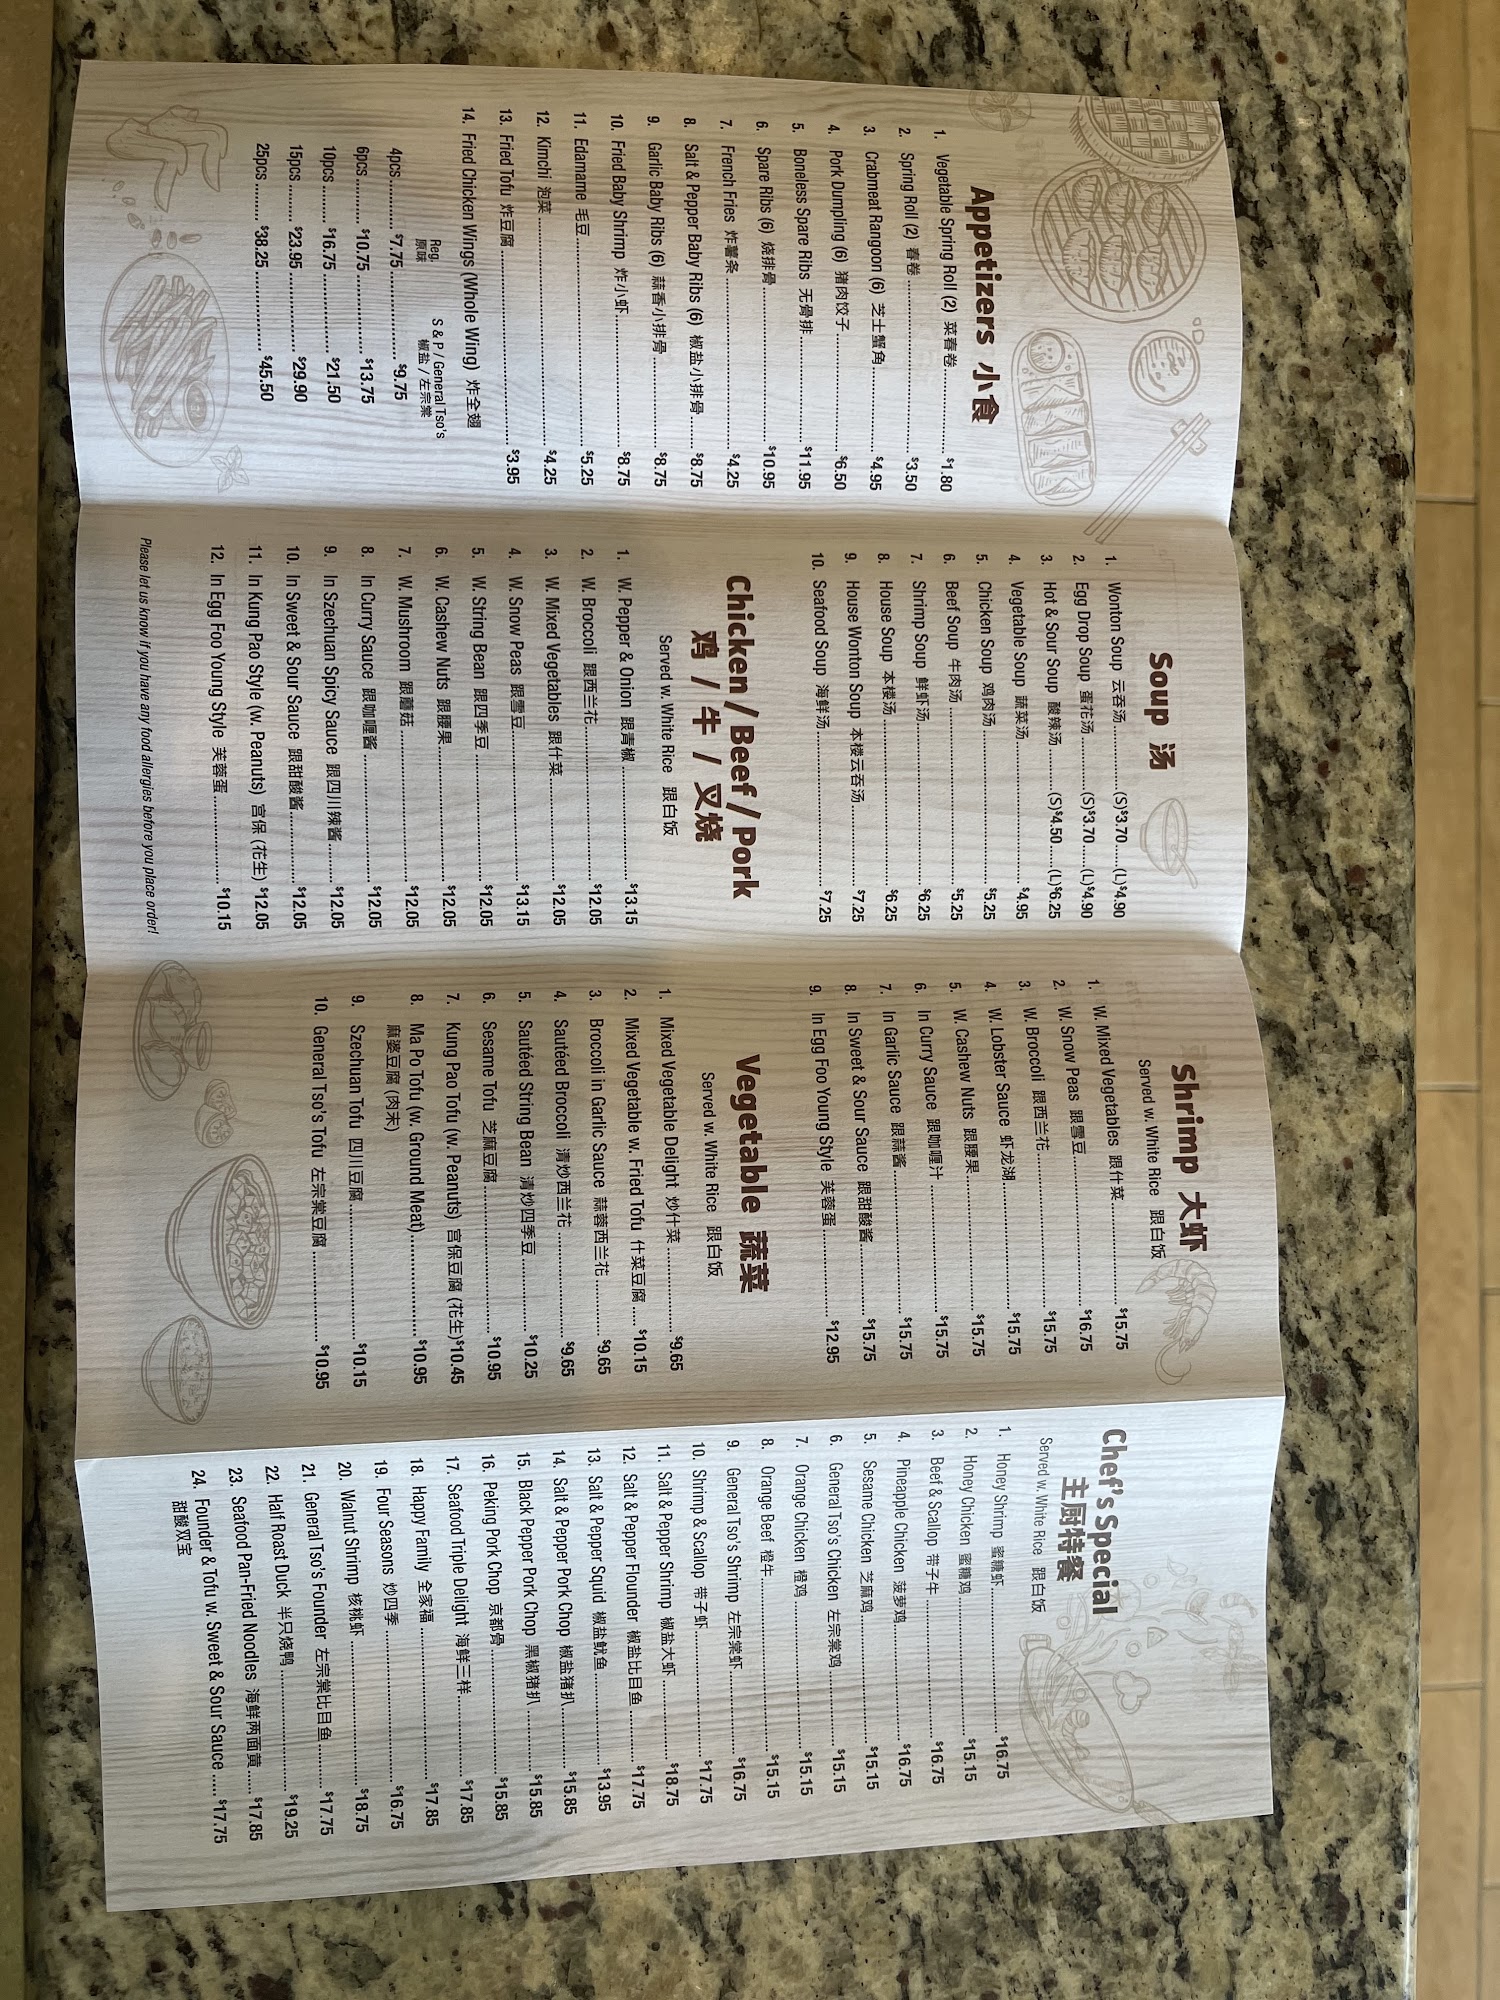 Appetizers 小食
1. Vegetable Spring Roll (2) 菜春卷 $1.80
2. Spring Roll (2) 春卷 $3.50
3. Crabmeat Rangoon (6) 芝士蟹角 $4.95
4. Pork Dumpling (6) 猪肉饺子 $6.50
5. Boneless Spare Ribs 无骨排 $11.95
6. Spare Ribs (6) 烧排骨 $10.95
7. French Fries 炸薯条 $4.25
8. Salt & Pepper Baby Ribs (6) 椒盐小排骨 $8.75
9. Garlic Baby Ribs (6) 蒜香小排骨 $8.75
10. Fried Baby Shrimp 炸小虾 $8.75
11. Edamame 毛豆 $5.25
12. Kimchi 泡菜 $4.25
13. Fried Tofu 炸豆腐 $3.95
14. Fried Chicken Wings (Whole Wing) 炸全翅
Reg. S & P / General Tso's
原味 椒盐 / 左宗棠
4pcs $7.75 $9.75
6pcs $10.75 $13.75
10pcs $16.75 $21.50
15pcs $23.95 $29.90
25pcs $38.25 $45.50
Soup 汤
1. Wonton Soup 云吞汤 (S)$3.70 (L)$4.90
2. Egg Drop Soup 蛋花汤 (S)$3.70 (L)$4.90
3. Hot & Sour Soup 酸辣汤 (S)$4.50 (L)$6.25
4. Vegetable Soup 蔬菜汤 $4.95
5. Chicken Soup 鸡肉汤 $5.25
6. Beef Soup 牛肉汤 $5.25
7. Shrimp Soup 鲜虾汤 $6.25
8. House Soup 本楼汤 $6.25
9. House Wonton Soup 本楼云吞汤 $7.25
10. Seafood Soup 海鲜汤 $7.25
Chicken / Beef / Pork
鸡 / 牛 / 叉烧
Served w. White Rice 跟白饭
1. W. Pepper & Onion 跟青椒 $13.15
2. W. Broccoli 跟西兰花 $12.05
3. W. Mixed Vegetables 跟什菜 $12.05
4. W. Snow Peas 跟雪豆 $13.15
5. W. String Bean 跟四季豆 $12.05
6. W. Cashew Nuts 跟腰果 $12.05
7. W. Mushroom 跟蘑菇 $12.05
8. In Curry Sauce 跟咖喱酱 $12.05
9. In Szechuan Spicy Sauce 跟四川辣酱 $12.05
10. In Sweet & Sour Sauce 跟甜酸酱 $12.05
11. In Kung Pao Style (w. Peanuts) 宫保 (花生) $12.05
12. In Egg Foo Young Style 芙蓉蛋 $10.15
Please let us know if you have any food allergies before you place order!
Shrimp 大虾
Served w. White Rice 跟白饭
1. W. Mixed Vegetables 跟什菜 $15.75
2. W. Snow Peas 跟雪豆 $16.75
3. W. Broccoli 跟西兰花 $15.75
4. W. Lobster Sauce 虾龙湖 $15.75
5. W. Cashew Nuts 跟腰果 $15.75
6. In Curry Sauce 跟咖喱汁 $15.75
7. In Garlic Sauce 跟蒜酱 $15.75
8. In Sweet & Sour Sauce 跟甜酸酱 $15.75
9. In Egg Foo Young Style 芙蓉蛋 $12.95
Vegetable 蔬菜
Served w. White Rice 跟白饭
1. Mixed Vegetable Delight 炒什菜 $9.65
2. Mixed Vegetable w. Fried Tofu 什菜豆腐 $10.15
3. Broccoli in Garlic Sauce 蒜蓉西兰花 $9.65
4. Sautéed Broccoli 清炒西兰花 $9.65
5. Sautéed String Bean 清炒四季豆 $10.25
6. Sesame Tofu 芝麻豆腐 $10.95
7. Kung Pao Tofu (w. Peanuts) 宫保豆腐 (花生) $10.45
8. Ma Po Tofu (w. Ground Meat) $10.95
麻婆豆腐 (肉末)
9. Szechuan Tofu 四川豆腐 $10.15
10. General Tso's Tofu 左宗棠豆腐 $10.95
Chef's Special
主厨特餐
Served w. White Rice 跟白饭
1. Honey Shrimp 蜜糖虾 $16.75
2. Honey Chicken 蜜糖鸡 $15.15
3. Beef & Scallop 带子牛 $16.75
4. Pineapple Chicken 菠萝鸡 $16.75
5. Sesame Chicken 芝麻鸡 $15.15
6. General Tso's Chicken 左宗棠鸡 $15.15
7. Orange Chicken 橙鸡 $15.15
8. Orange Beef 橙牛 $15.15
9. General Tso's Shrimp 左宗棠虾 $16.75
10. Shrimp & Scallop 带子虾 $17.75
11. Salt & Pepper Shrimp 椒盐大虾 $18.75
12. Salt & Pepper Flounder 椒盐比目鱼 $17.75
13. Salt & Pepper Squid 椒盐鱿鱼 $13.95
14. Salt & Pepper Pork Chop 椒盐猪扒 $15.85
15. Black Pepper Pork Chop 黑椒猪扒 $15.85
16. Peking Pork Chop 京都骨 $15.85
17. Seafood Triple Delight 海鲜三样 $17.85
18. Happy Family 全家福 $17.85
19. Four Seasons 炒四季 $16.75
20. Walnut Shrimp 核桃虾 $18.75
21. General Tso's Founder 左宗棠比目鱼 $17.75
22. Half Roast Duck 半只烧鸭 $19.25
23. Seafood Pan-Fried Noodles 海鲜两面黄 $17.85
24. Founder & Tofu w. Sweet & Sour Sauce $17.75
甜酸双宝